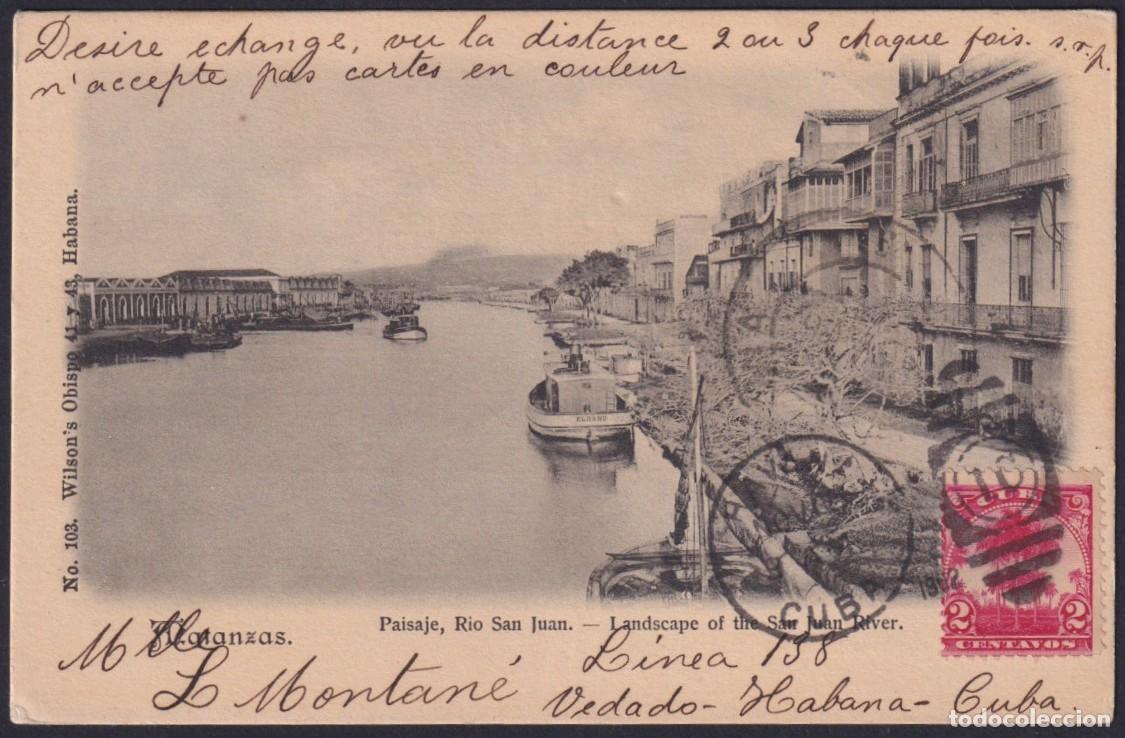 Desire echange, vu la distance 2 ou 3 chaque fois. s.v.p.
n'accepte pas cartes en couleur
No. 103. Wilson's Obispo 41 y 43, Habana.
EL
CUBA
1902
10
CUBA
2 2
CENTAVOS
Matanzas.
Paisaje, Rio San Juan. — Landscape of the San Juan River.
Mlle
L Montané
Línea 138
Vedado - Habana - Cuba.
todocoleccion